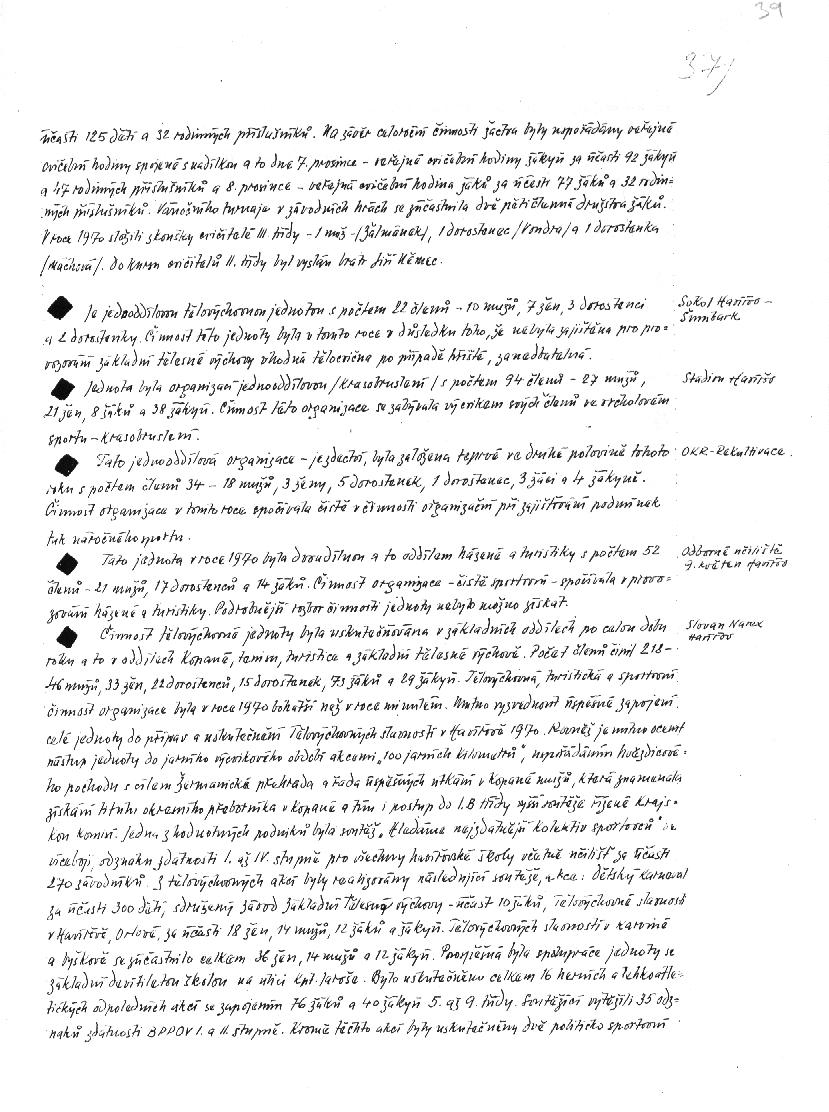 39
37/
účasti 125 dětí a 32 rodinných příslušníků. Na závěr celoroční činnosti žactva byly uspořádány veřejné
cvičební hodiny spojené s nadílkou a to dne 7. prosince - veřejné cvičební hodiny žákyň za účasti 92 žákyň
a 47 rodinných příslušníků a 8. prosince - veřejná cvičební hodina žáků za účasti 77 žáků a 32 rodin=
ných příslušníků. Vánočního turnaje v závodních hrách se zúčastnila dvě pětičlenná družstva žáků.
V roce 1970 složili zkoušky cvičitelé III. třídy - 1 muž -/Žálmánek/, 1 dorostenec /Vondra/ a 1 dorostenka
/Machová/. Do kursu cvičitelů II. třídy byl vyslán bratr Jiří Němec.
Je jednooddílovou tělovýchovnou jednotou s počtem 22 členů - 10 mužů, 7 žen, 3 dorostenci
Sokol Havířov -
Šumbark
a 2 dorostenky. Činnost této jednoty byla v tomto roce v důsledku toho, že nebyla zajištěna pro pro=
vozování základní tělesné výchovy vhodná tělocvična po případě hřiště, zanedbatelná.
Jednota byla organizací jednooddílovou /krasobruslení/ s počtem 94 členů - 27 mužů,
Stadion Havířov
21 žen, 8 žáků a 38 žákyň. Činnost této organizace se zabývala výcvikem svých členů ve vrcholovém
sportu - krasobruslení.
Tato jednooddílová organizace - jezdectví, byla založena teprve ve druhé polovině tohoto
OKR-Rekultivace.
roku s počtem členů 34 - 18 mužů, 3 ženy, 5 dorostenek, 1 dorostenec, 3 žáci a 4 žákyně.
Činnost organizace v tomto roce spočívala čistě v činnosti organizační při zajišťování podmínek
tak náročného sportu.
Tato jednota v roce 1970 byla dvoudílnou a to oddílem házené a turistiky s počtem 52
Odborné učiliště
9. květen Havířov
členů - 21 mužů, 17 dorostenců a 14 žáků. Činnost organizace - čistě sportovní - spočívala v provo=
zování házené a turistiky. Podrobnější rozbor činnosti jednoty nebylo možno získat.
Činnost tělovýchovné jednoty byla uskutečňována v základních oddílech po celou dobu
Slovan Narex
Havířov
roku a to v oddílech kopané, tenisu, turistice a základní tělesné výchově. Počet členů činil 218 -
46 mužů, 33 žen, 22 dorostenců, 15 dorostenek, 73 žáků a 29 žákyň. Tělovýchovná, turistická a sportovní
činnost organizace byla v roce 1970 bohatší než v roce minulém. Nutno vyzvednout úspěšné zapojení
celé jednoty do příprav a uskutečnění Tělovýchovných slavností v Havířově 1970. Rovněž je nutno ocenit
nástup jednoty do jarního výcvikového období akcemi „100 jarních kilometrů", uspořádáním hvězdicové=
ho pochodu s cílem Žermanická přehrada a řada úspěšných utkání v kopané mužů, která znamenala
získání titulu okresního přeborníka v kopané a tím i postup do I.B třídy vyšší soutěže řízené krajs=
kou komisí. Jedna z hodnotných podniků byla soutěž „Hledáme nejzdatnější kolektiv sportovců" ve
víceboji, odznaku zdatnosti I. až IV. stupně pro všechny havířovské školy včetně učilišť za účasti
270 závodníků. Z tělovýchovných akcí byly realizovány následující soutěže, akce: dětský karneval
za účasti 300 dětí, sdružený závod Základní Tělesné výchovy - účast 10 žáků, Tělovýchovné slavnosti
v Havířově, Orlové, za účasti 18 žen, 14 mužů, 12 žáků a žákyň. Tělovýchovných slavností v Karviné
a Býškově se zúčastnilo celkem 36 žen, 14 mužů a 12 žákyň. Pronikavá byla spolupráce jednoty se
základní devítiletou školou na ulici Kpt. Jaroše. Bylo uskutečněno celkem 16 herních a lehkoatle=
tických odpoledních akcí se zapojením 76 žáků a 40 žákyň 5. až 9. třídy. Soutěžící vytěžili 35 odz=
naků zdatnosti BPPOV I. a II. stupně. Kromě těchto akcí byly uskutečněny dvě politicko sportovní